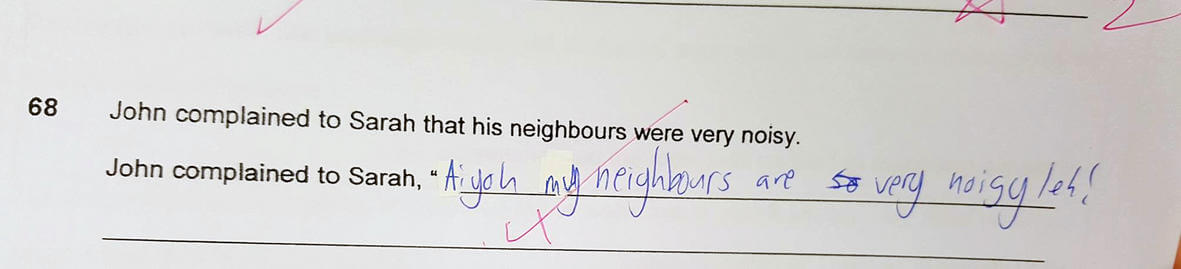 68 John complained to Sarah that his neighbours were very noisy.
John complained to Sarah, "Aiyoh my neighbours are so very noisy leh!